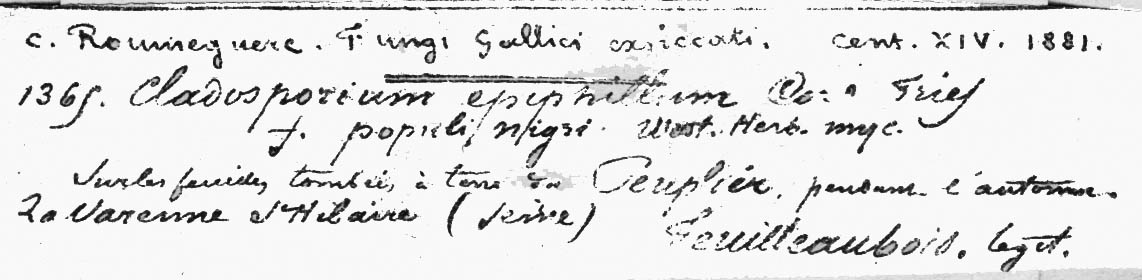 C. Roumeguere. Fungi Gallici exsiccati. Cent. XIV. 1881.
1365. Cladosporium epiphillum Fries
f. populi nigri. West. Herb. myc.
Sur les feuilles tombées à terre du Peuplier, pendant l'automne.
La Varenne St Hilaire (Seine)
Feuilleaubois. legit.